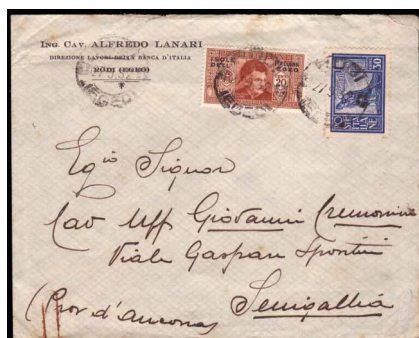 ING. CAV. ALFREDO LANARI
DIREZIONE LAVORI DELLA BANCA D'ITALIA
RODI (EGEO)
ISOLE ITALIANE
DELL' EGEO
20
50
Egio Signor
Cav Uff Giovanni Cremonini
Viale Gaspare Spontini
Senigallia
(Prov d'Ancona)